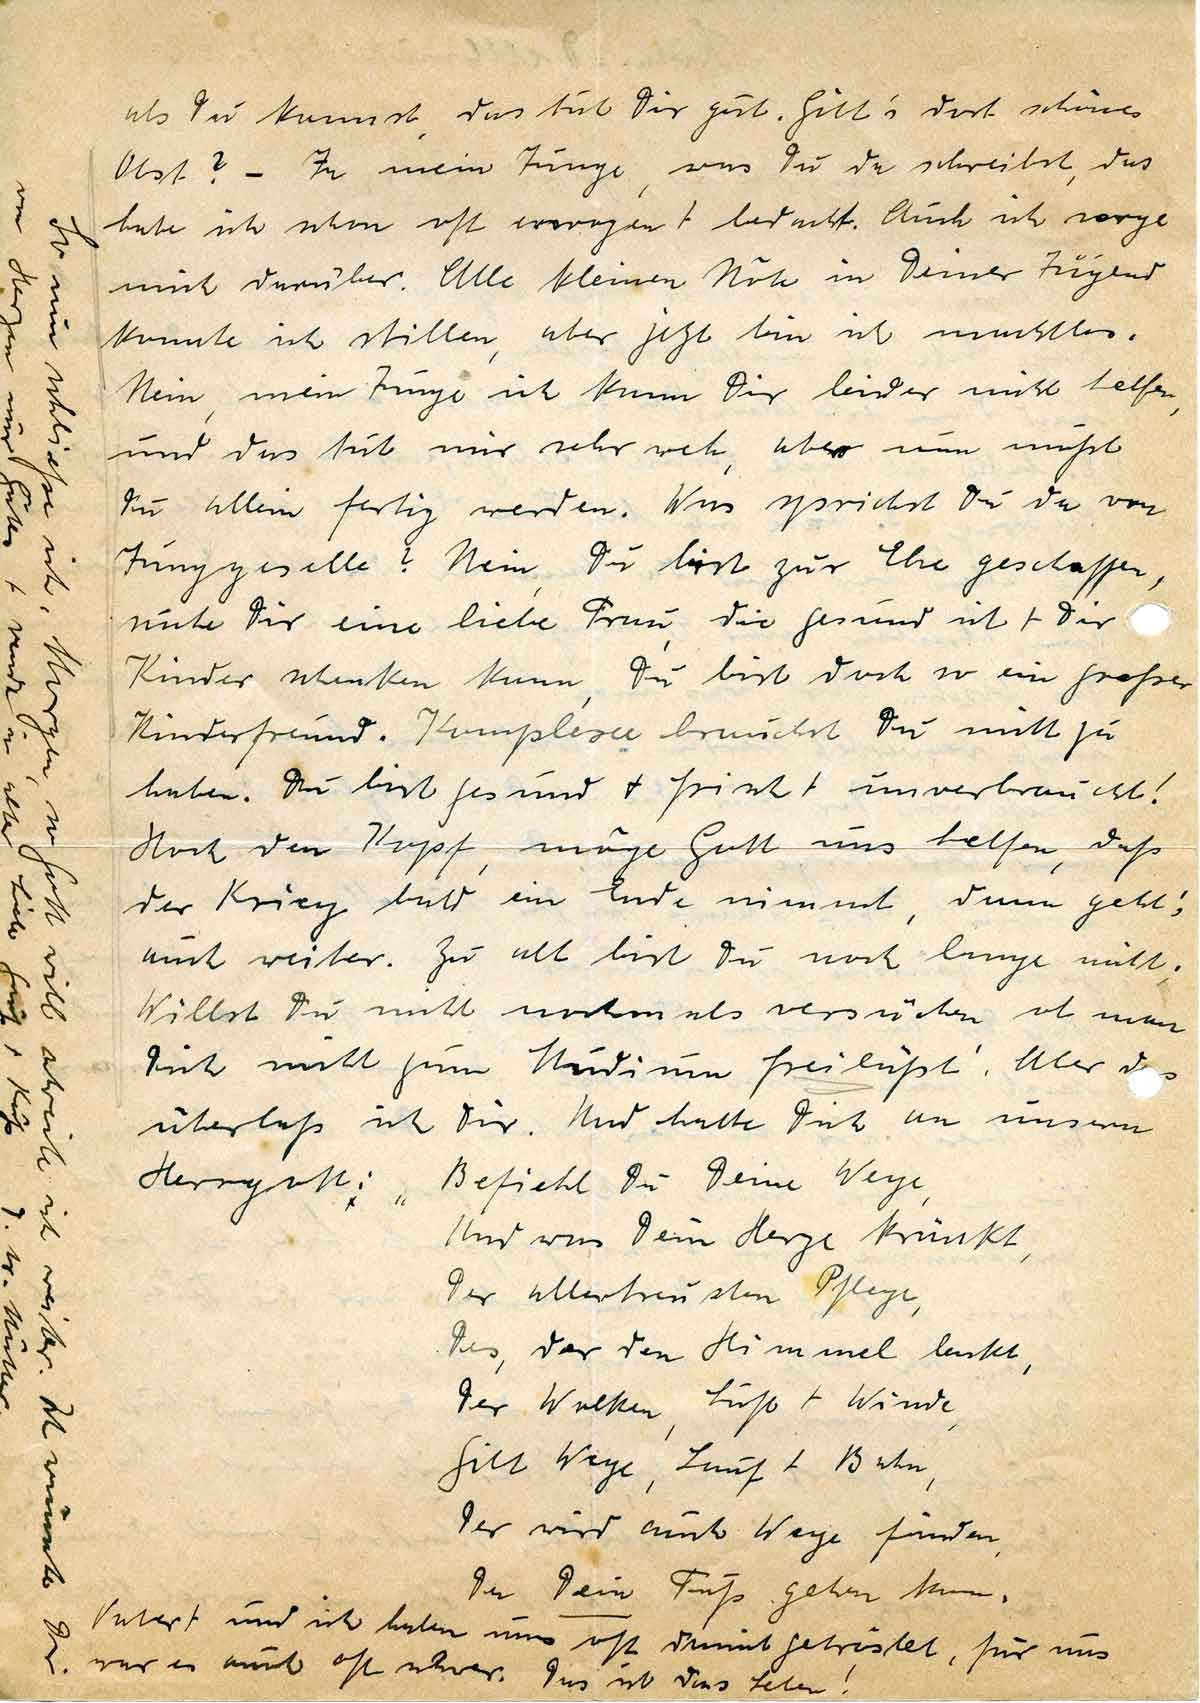 als Du kannst, das tut Dir gut. Gibt's dort schönes
Obst? – Ja mein Junge, was Du da schreibst, das
habe ich schon oft erwogen + bedacht. Auch ich sorge
mich darüber. Alle kleinen Nöte in Deiner Jugend
konnte ich stillen, aber jetzt bin ich machtlos.
Nein, mein Junge ich kann Dir leider nicht helfen,
und das tut mir sehr weh, aber nun mußt
Du allein fertig werden. Was sprichst Du da von
Junggeselle? Nein, Du bist zur Ehe geschaffen,
suche Dir eine liebe Frau, die gesund ist + Dir
Kinder schenken kann, Du bist doch so ein großer
Kinderfreund. Komplexe brauchst Du nicht zu
haben. Du bist gesund + frisch + unverbraucht!
Hoch den Kopf, möge Gott uns helfen, daß
der Krieg bald ein Ende nimmt, dann geht's
auch weiter. Zu alt bist Du noch lange nicht.
Willst Du nicht nochmals versuchen ob man
Dich nicht zum Studium freiläßt! Aber das
überlaß ich Dir. Und halte Dich an unsern
Herrgott: „Befiehl Du Deine Wege,
Und was Dein Herze kränkt,
Der allertreusten Pflege,
Des, der den Himmel lenkt,
Der Wolken, Luft + Winde,
Gibt Wege, Lauf + Bahn,
Der wird auch Wege finden,
Da Dein Fuß gehen kann.
Vater + und ich haben uns oft damit getröstet, für uns
war es auch oft schwer. Das ist das Leben!
So nun schließe ich, Morgen, so Gott will schreibe ich weiter. Ich wünsche Dir
von Herzen nur Gutes + sende in alter Liebe Gruß + Kuß D. tr. Mutter.